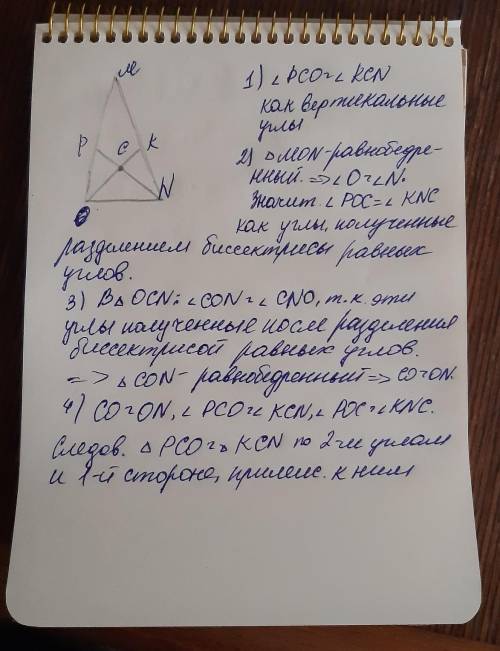 M
P
C
K
O
N
1) ∠PCO = ∠KCN
как вертикальные
углы
2) △MON - равнобедре-
нный. => ∠O = ∠N.
Значит. ∠POC = ∠KNC
как углы, полученные
разделением биссектрисы равных
углов.
3) В △OCN: ∠CON = ∠CNO, т.к. эти
углы полученные после разделения
биссектрисой равных углов.
=> △CON - равнобедренный => CO = ON.
4) CO = ON, ∠PCO = ∠KCN, ∠POC = ∠KNC.
Следов. △PCO = △KCN по 2-м углам
и 1-й стороне, прилеж. к ним